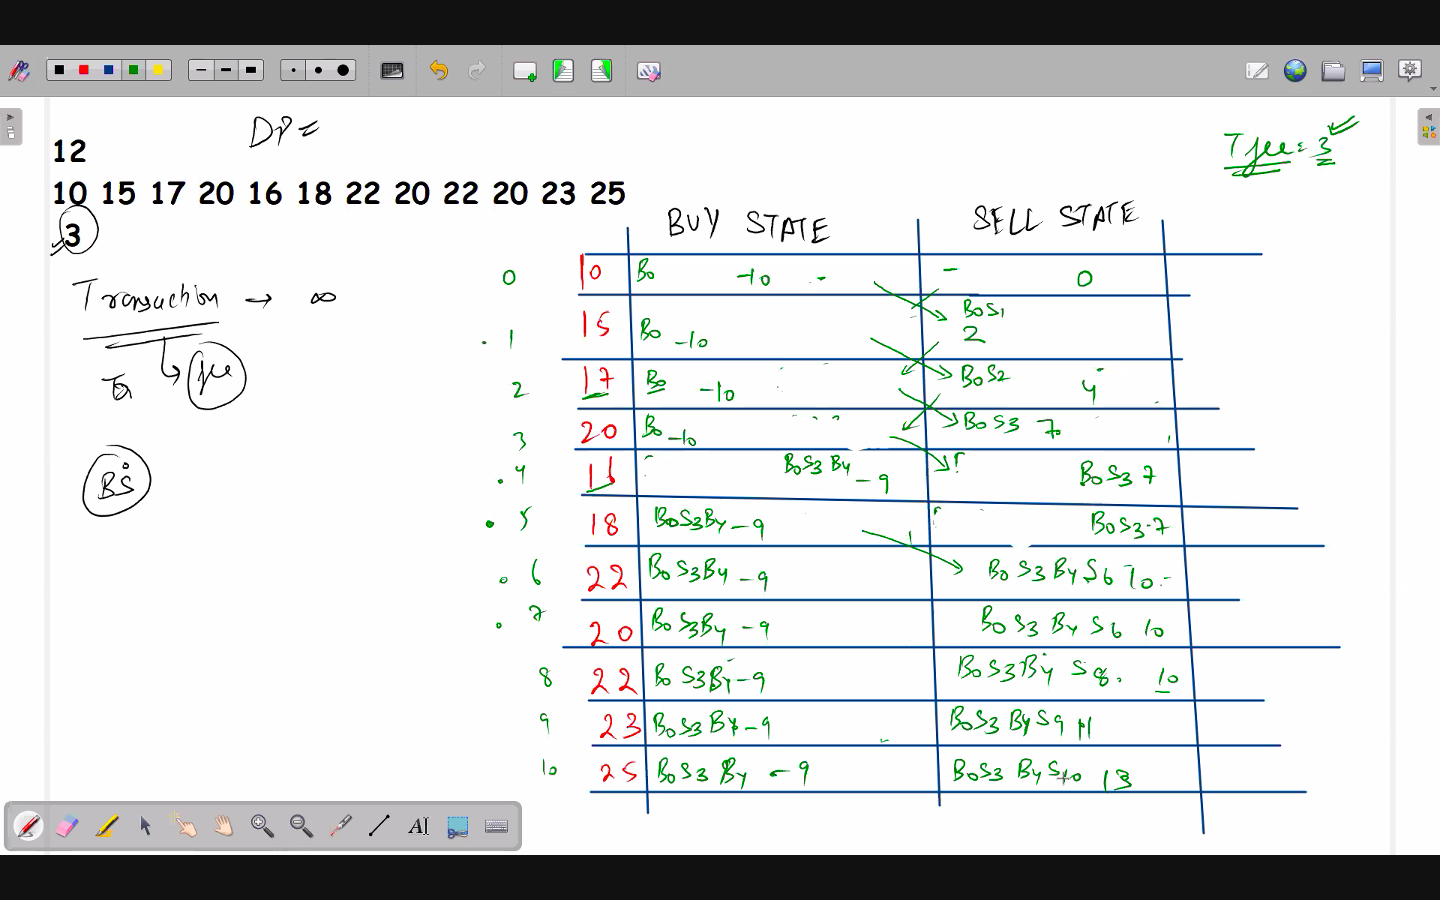 DP =
12
10 15 17 20 16 18 22 20 22 20 23 25
3
T fee = 3
Transaction → ∞
fee
BS
BUY STATE SELL STATE
0 10 B0 -10 - - 0
1 15 B0 -10 B0S1 2
2 17 B0 -10 B0S2 4
3 20 B0 -10 B0S3 7
4 16 B0S3B4 -9 B0S3 7
5 18 B0S3B4 -9 B0S3 7
6 22 B0S3B4 -9 B0S3B4S6 10
7 20 B0S3B4 -9 B0S3B4S6 10
8 22 B0S3B4 -9 B0S3B4S8 10
9 23 B0S3B4 -9 B0S3B4S9 11
10 25 B0S3B4 -9 B0S3B4S10 13